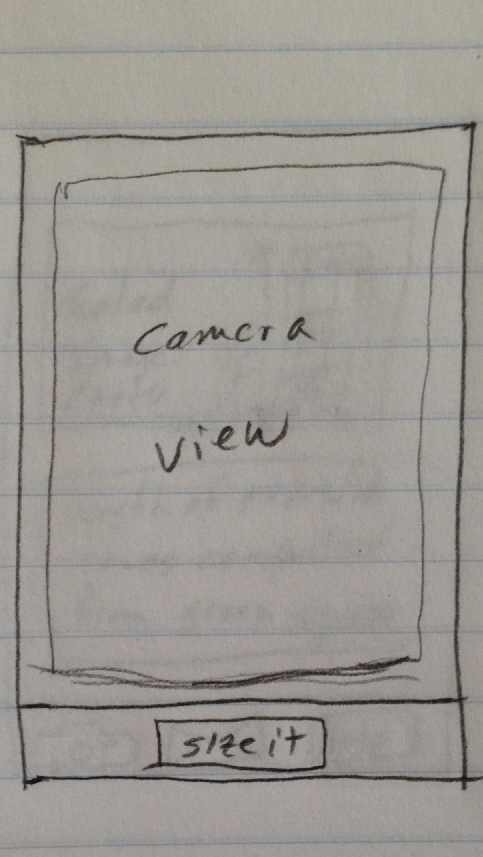 camera
view
size it